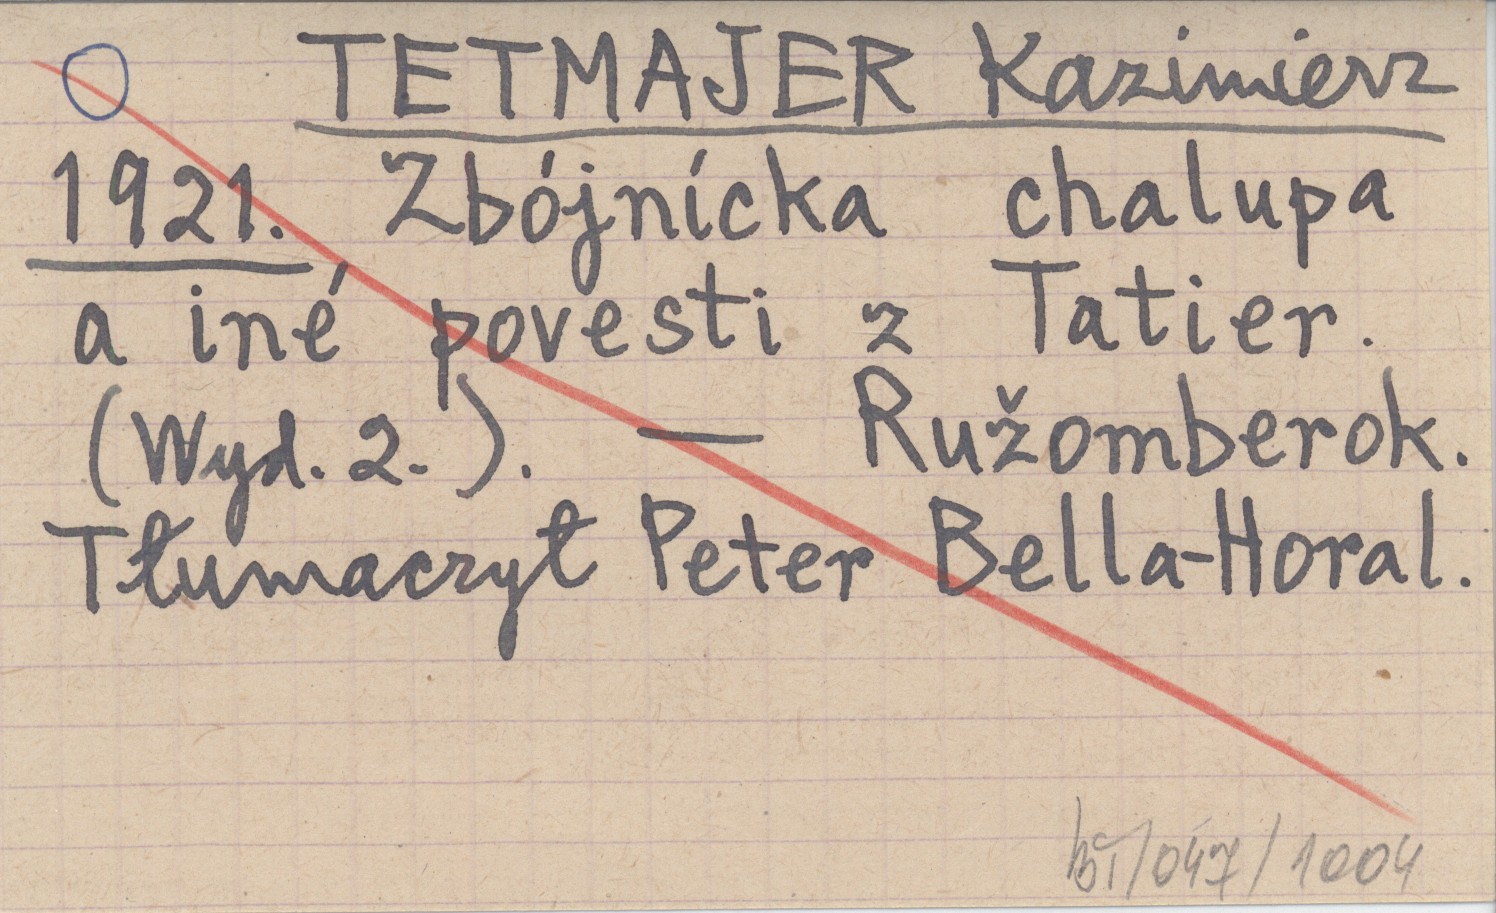 TETMAJER Kazimierz
1921. Zbójnícka chalupa
a iné povesti z Tatier.
(Wyd. 2.). — Ružomberok.
Tłumaczył Peter Bella-Horal.
/047/1004